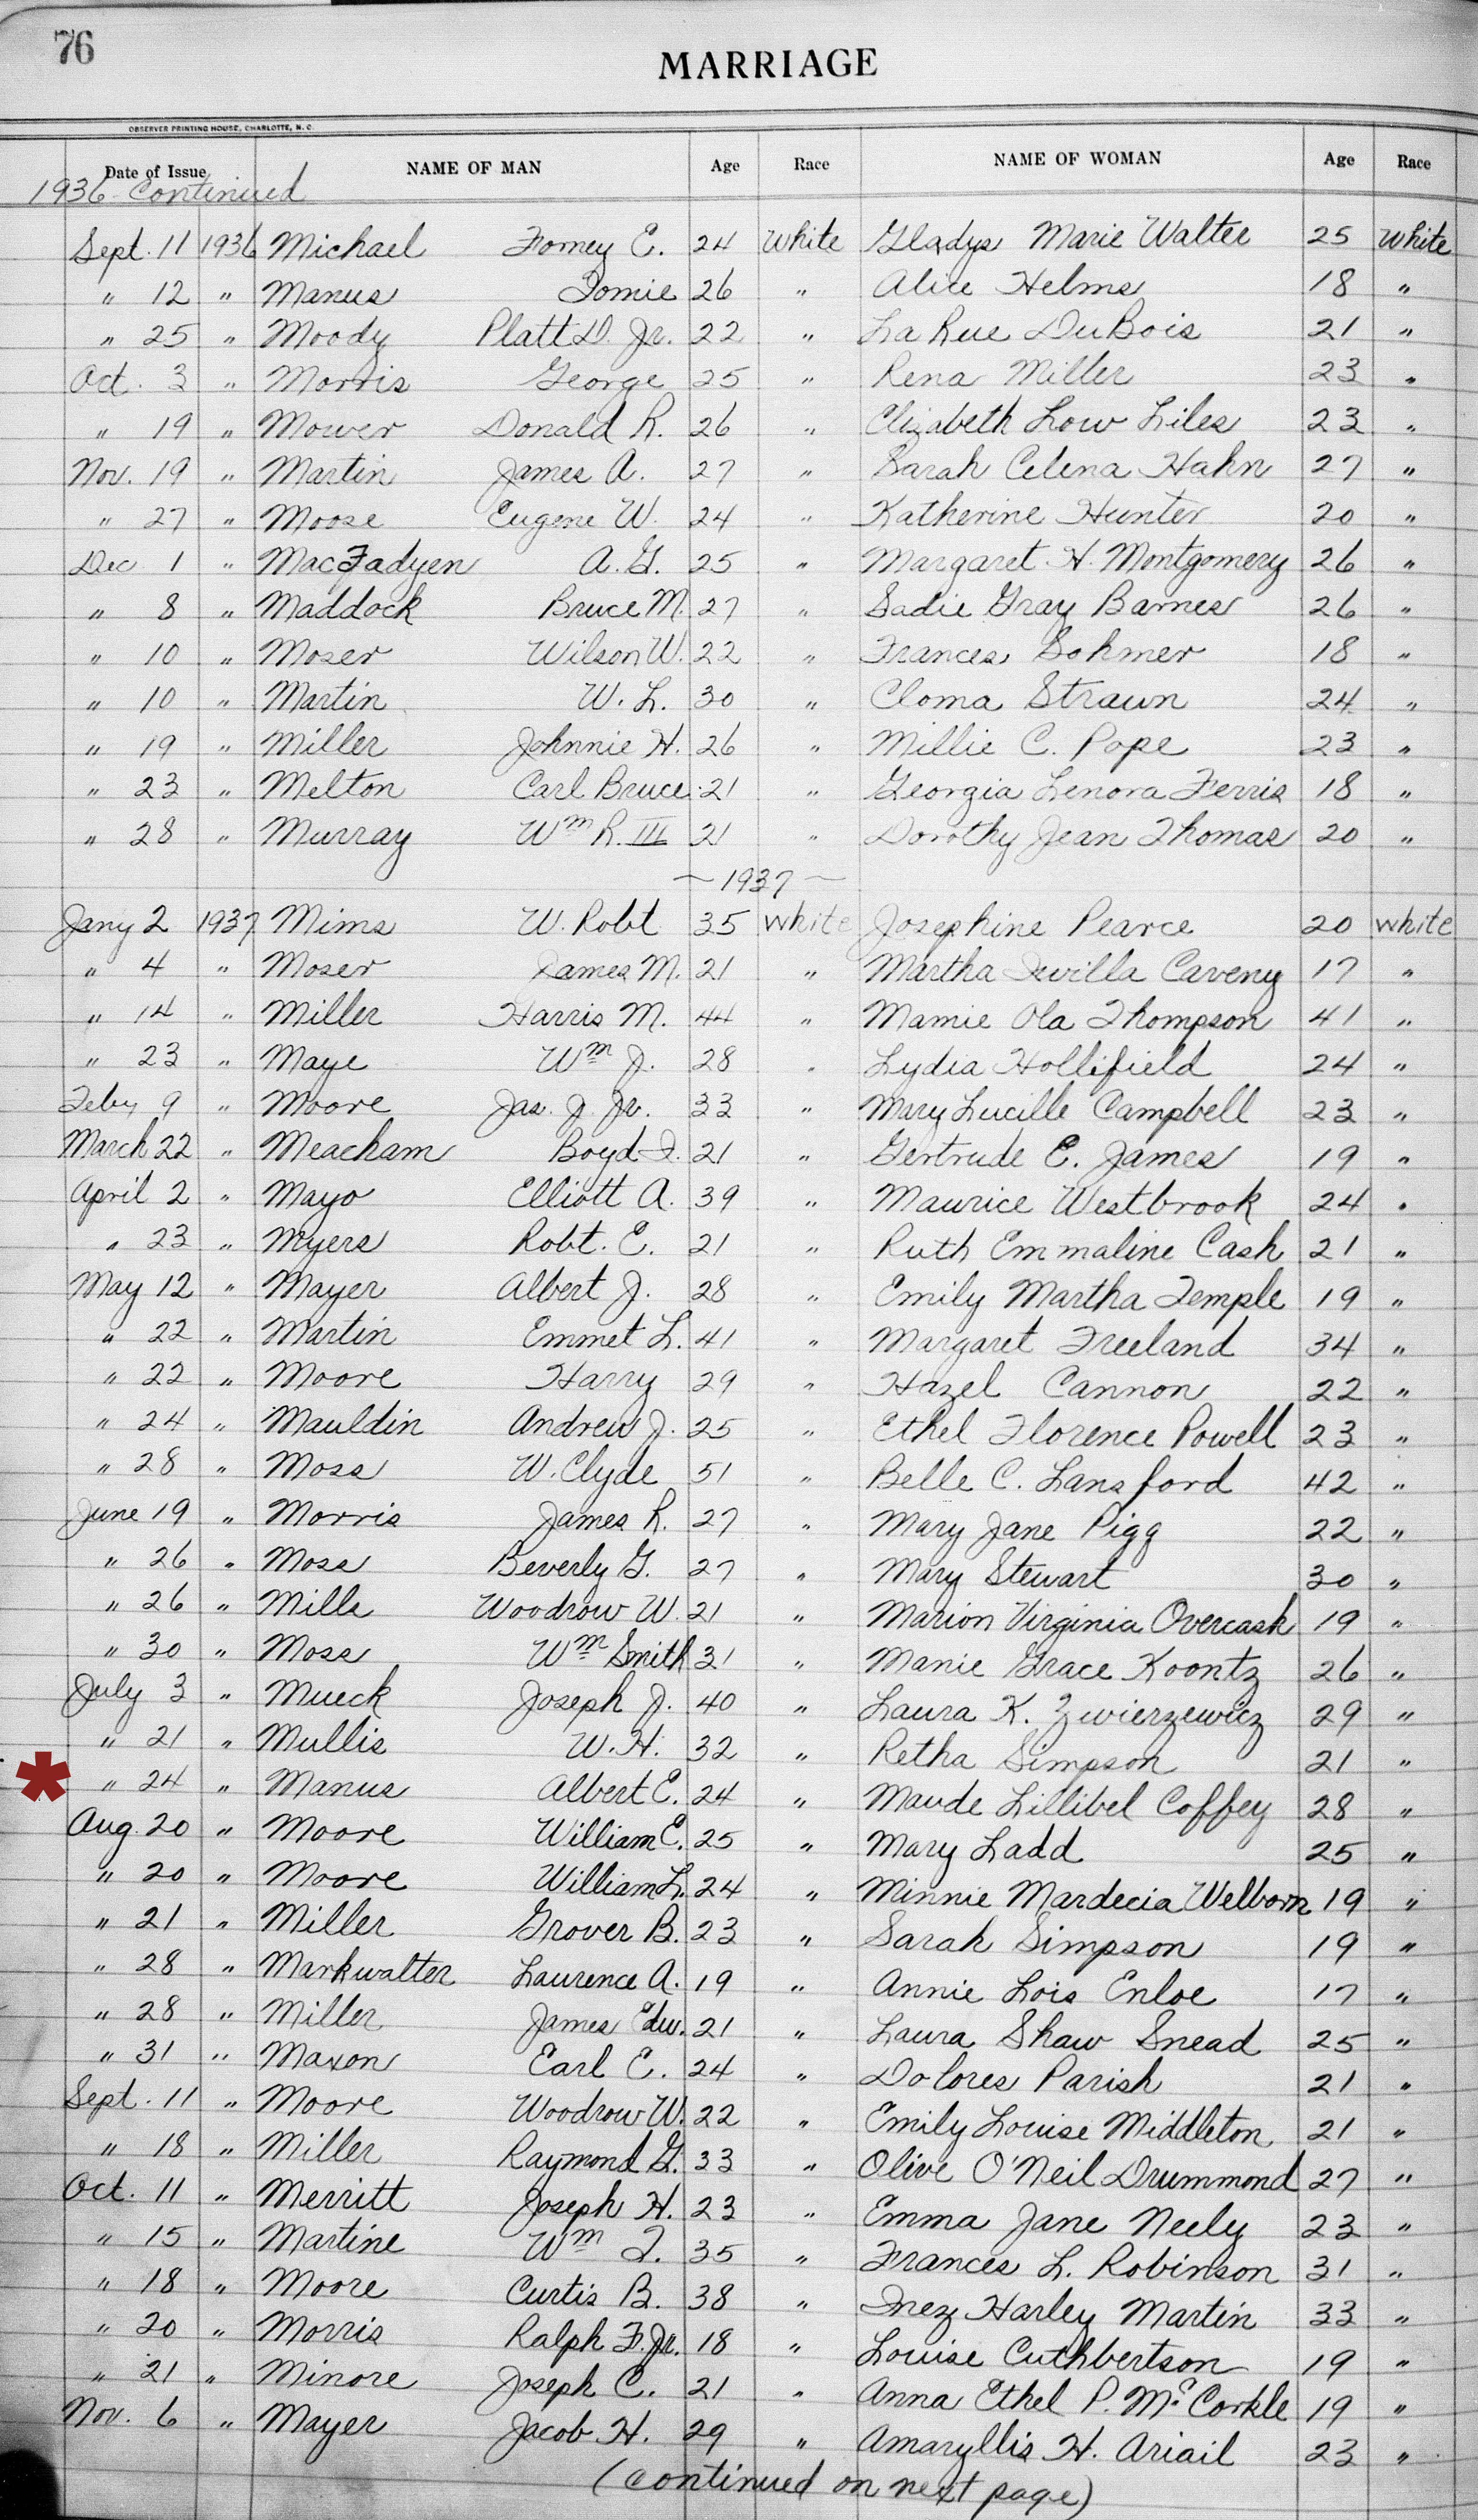 76
MARRIAGE
OBSERVER PRINTING HOUSE, CHARLOTTE, N. C.
Date of Issue NAME OF MAN Age Race NAME OF WOMAN Age Race
1936 Continued
Sept. 11 1936 Michael Forney E. 24 White Gladys Marie Walter 25 White
" 12 " Manus Tomie 26 " Alice Helms 18 "
" 25 " Moody Platt D. Jr. 22 " La Rue DuBois 21 "
Oct. 3 " Morris George 25 " Rena Miller 23 "
" 19 " Mower Donald R. 26 " Elizabeth Low Liles 23 "
Nov. 19 " Martin James A. 27 " Sarah Celena Hahn 27 "
" 27 " Moose Eugene W. 24 " Katherine Hunter 20 "
Dec 1 " MacFadyen A. G. 25 " Margaret H. Montgomery 26 "
" 8 " Maddock Bruce M. 27 " Sadie Gray Barnes 26 "
" 10 " Moser Wilson W. 22 " Frances Sohmer 18 "
" 10 " Martin W. L. 30 " Cloma Strawn 24 "
" 19 " Miller Johnnie H. 26 " Millie C. Pope 23 "
" 23 " Melton Carl Bruce 21 " Georgia Lenora Ferris 18 "
" 28 " Murray Wm R. III 21 " Dorothy Jean Thomas 20 "
~ 1937 ~
Jany 2 1937 Mims W. Robt 35 White Josephine Pearce 20 White
" 4 " Moser James M. 21 " Martha Iwilla Caveny 17 "
" 14 " Miller Harris M. 44 " Mamie Ola Thompson 41 "
" 23 " Maye Wm J. 28 " Lydia Hollifield 24 "
Feby 9 " Moore Jas. J. Jr. 33 " Mary Lucille Campbell 23 "
March 22 " Meacham Boyd I. 21 " Gertrude E. James 19 "
April 2 " Mayo Elliott A. 39 " Maurice Westbrook 24 "
" 23 " Myers Robt. E. 21 " Ruth Emmaline Cash 21 "
May 12 " Mayer Albert J. 28 " Emily Martha Temple 19 "
" 22 " Martin Emmet L. 41 " Margaret Freeland 34 "
" 22 " Moore Harry 29 " Hazel Cannon 22 "
" 24 " Mauldin Andrew J. 25 " Ethel Florence Powell 23 "
" 28 " Moss W. Clyde 51 " Belle C. Lansford 42 "
June 19 " Morris James R. 27 " Mary Jane Pigg 22 "
" 26 " Moss Beverly G. 27 " Mary Stewart 30 "
" 26 " Mills Woodrow W. 21 " Marion Virginia Overcash 19 "
" 30 " Moss Wm Smith 31 " Manie Grace Koontz 26 "
July 3 " Mueck Joseph J. 40 " Laura K. Zwierzewicz 29 "
" 21 " Mullis W. H. 32 " Retha Simpson 21 "
* " 24 " Manus Albert E. 24 " Maude Lillibel Coffey 28 "
Aug. 20 " Moore William E. 25 " Mary Ladd 25 "
" 20 " Moore William L. 24 " Minnie Mardecia Welborn 19 "
" 21 " Miller Grover B. 23 " Sarah Simpson 19 "
" 28 " Markwalter Laurence A. 19 " Annie Lois Enloe 17 "
" 28 " Miller James Edw. 21 " Laura Shaw Snead 25 "
" 31 " Maxon Earl E. 24 " Dolores Parish 21 "
Sept. 11 " Moore Woodrow W. 22 " Emily Louise Middleton 21 "
" 18 " Miller Raymond G. 33 " Olive O'Neil Drummond 27 "
Oct. 11 " Merritt Joseph H. 23 " Emma Jane Neely 23 "
" 15 " Martine Wm T. 35 " Frances L. Robinson 31 "
" 18 " Moore Curtis B. 38 " Inez Harley Martin 33 "
" 20 " Morris Ralph F. Jr. 18 " Louise Cuthbertson 19 "
" 21 " Minore Joseph C. 21 " Anna Ethel P. McCorkle 19 "
Nov. 6 " Mayer Jacob H. 29 " Amaryllis H. Ariail 23 "
(continued on next page)